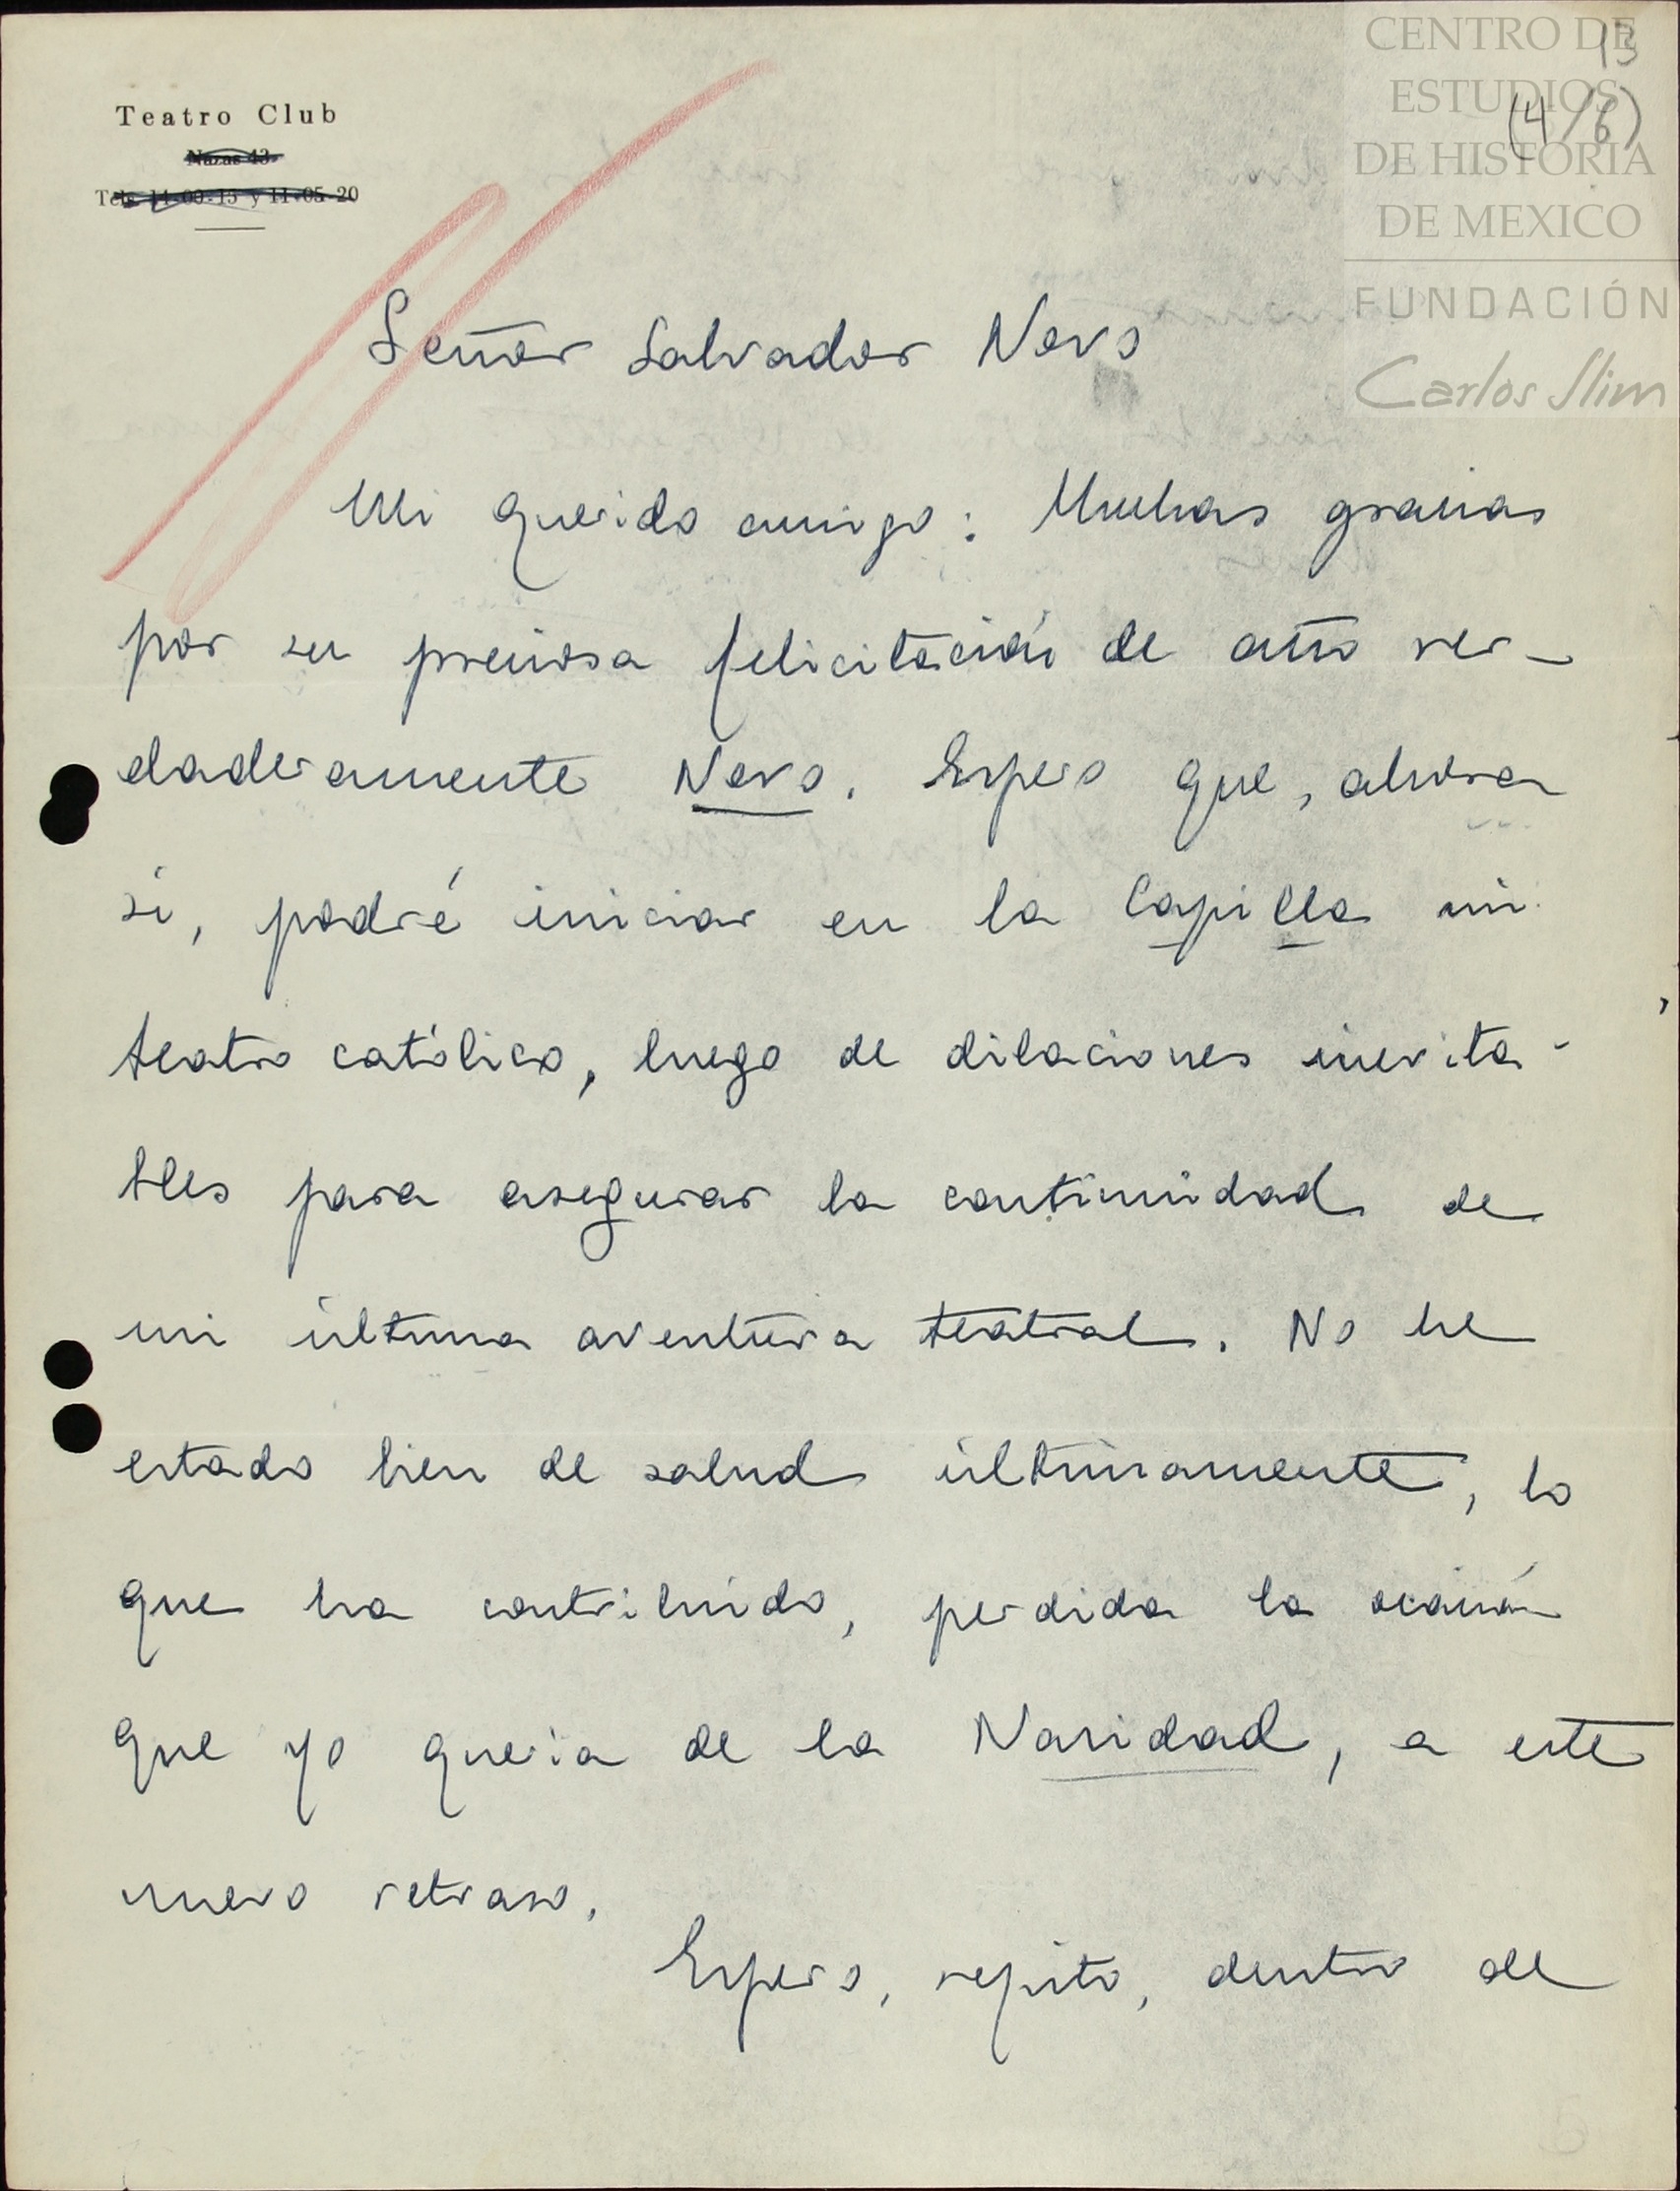 Teatro Club
Nazas 43
Tels. 14-09-15 y 11-05-20
13
(4/6)
CENTRO DE
ESTUDIOS
DE HISTORIA
DE MEXICO
FUNDACIÓN
Carlos Slim
Señor Salvador Novo
Mi querido amigo: Muchas gracias
por su preciosa felicitación de año ver-
daderamente Novo. Espero que, ahora
sí, podré iniciar en la Capilla mi
teatro católico, luego de dilaciones inevita-
bles para asegurar la continuidad de
mi última aventura teatral. No he
estado bien de salud últimamente, lo
que ha contribuído, perdida la ocasión
que yo quería de la Navidad, a este
nuevo retraso.
Espero, repito, dentro de